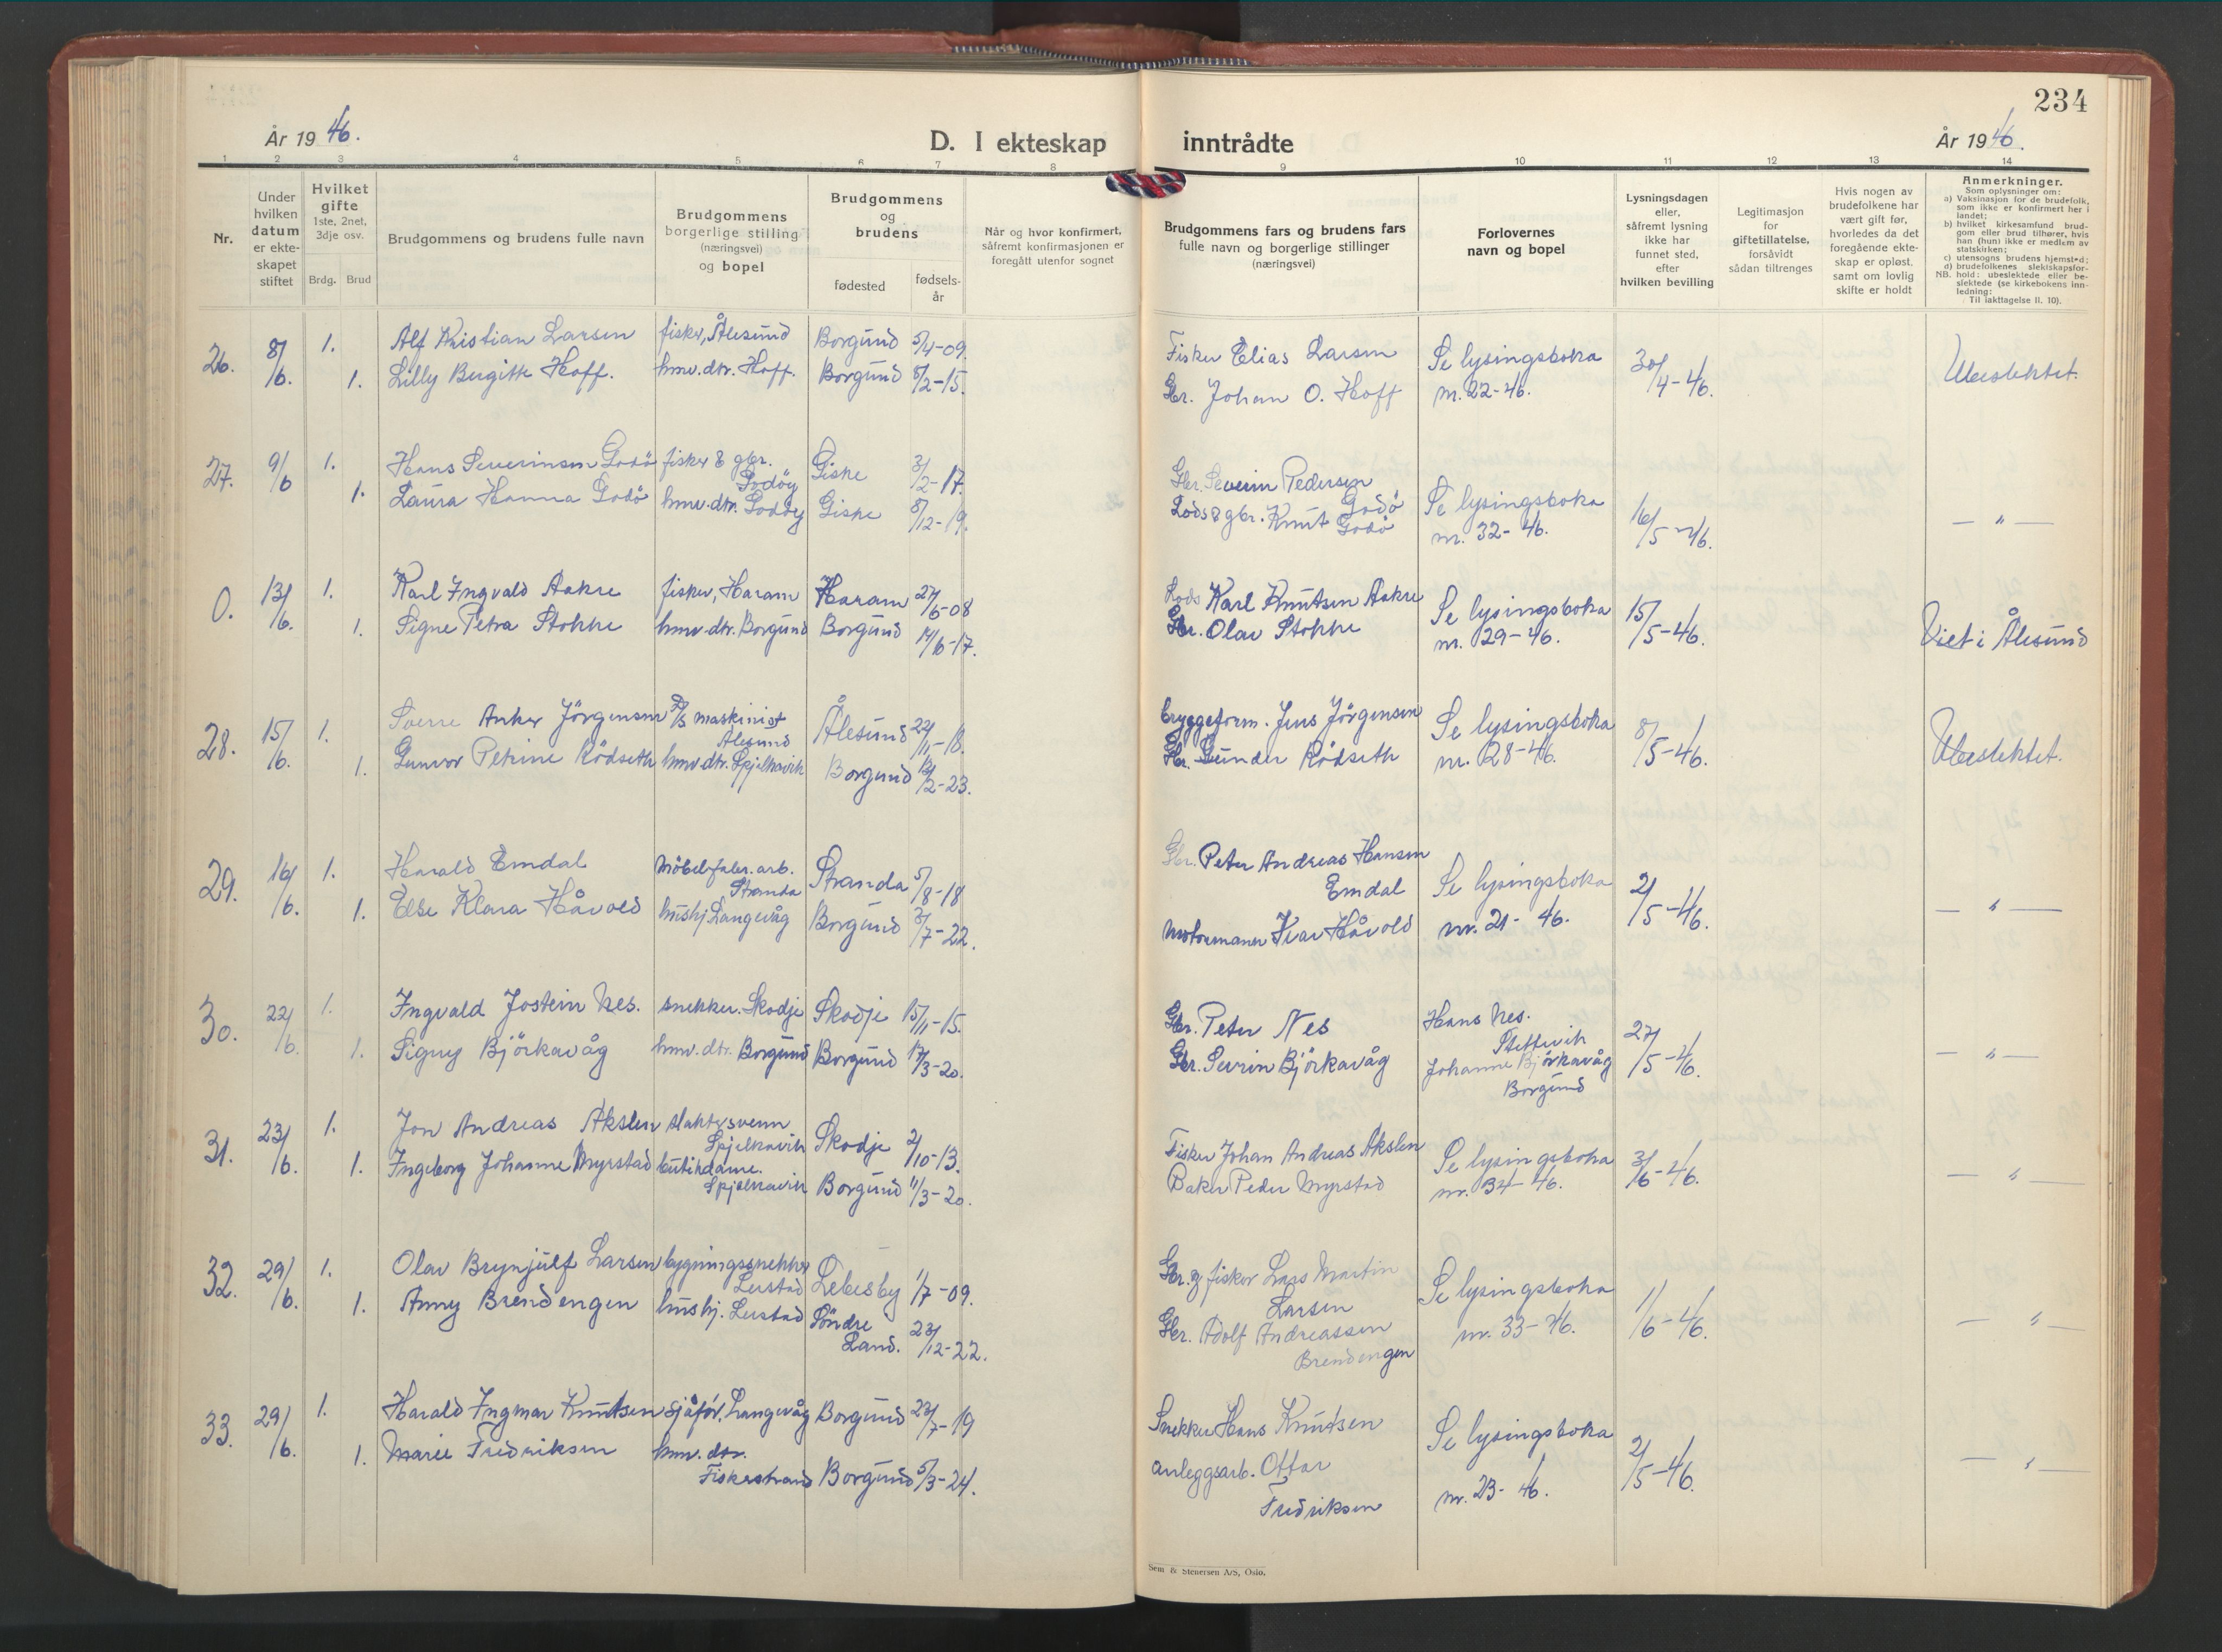 234
År 1946.
D. I ekteskap inntrådte
År 1946.
1 2 3 4 5 6 7 8 9 10 11 12 13 14
Nr.
Under
hvilken
datum
er ekte-
skapet
stiftet
Hvilket
gifte
1ste, 2net,
3dje osv.
Brdg. Brud
Brudgommens og brudens fulle navn
Brudgommens
borgerlige stilling
(næringsvei)
og bopel
Brudgommens
og
brudens
fødested
fødsels-
år
Når og hvor konfirmert,
såfremt konfirmasjonen er
foregått utenfor sognet
Brudgommens fars og brudens fars
fulle navn og borgerlige stillinger
(næringsvei)
Forlovernes
navn og bopel
Lysningsdagen
eller,
såfremt lysning
ikke har
funnet sted,
efter
hvilken bevilling
Legitimasjon
for
giftetillatelse,
forsåvidt
sådan tiltrenges
Hvis nogen av
brudefolkene har
vært gift før,
hvorledes da det
foregående ekte-
skap er opløst,
samt om lovlig
skifte er holdt
Anmerkninger.
Som oplysninger om:
a) Vaksinasjon for de brudefolk,
som ikke er konfirmert her i
landet;
b) hvilket kirkesamfund brud-
gom eller brud tilhører, hvis
han (hun) ikke er medlem av
statskirken;
c) utensogns brudens hjemsted;
d) brudefolkenes slektskapsfor-
NB. hold: ubeslektede eller be-
slektede (se kirkebokens inn-
ledning:
Til iakttagelse II. 10).
26. 8/6. 1. Alf Kristian Larsen fisker, Ålesund Borgund 5/4-09. Fisker Elias Larsen Se lysingsboka 30/4-46. Ubeslektet.
1. Lilly Birgitte Hoff. hmv.dtr. Hoff. Borgund 8/2-15. Gbr. Johan O. Hoff nr. 22-46.
27. 9/6 1. Hans Severinsen Godö fisker & gbr. Godöy Giske 3/2-17. Gbr. Severin Pedersen Godö Se lysingsboka 16/5-46. — " —
1. Laura Hanna Godö hmv.dtr. Godöy Giske 8/12-19. Lods & gbr. Knut Godö nr. 32-46.
0. 13/6. 1. Karl Ingvald Aakre fisker, Haram Haram 27/6-08 Lods Karl Knutsen Aakre Se lysingsboka 15/5-46. Viet i Ålesund
1. Signe Petra Stokke hmv.dtr. Borgund Borgund 14/6-17. Gbr. Olav Stokke nr. 29-46.
28. 15/6. 1. Sverre Anker Jörgensen D/S maskinist Ålesund Ålesund 22/11-18. bryggeform. Jens Jörgensen Se lysingsboka 8/5-46. Ubeslektet.
1. Gunvor Petrine Rödseth hmv.dtr. Spjelkavik Borgund /2-23. Gbr. Gunder Rödseth nr. 28-46.
29. 16/6. 1. Harald Emdal Möbelfabr.arb. Stranda Stranda 5/8-18 Gbr. Peter Andreas Hansen Emdal Se lysingsboka 2/5-46. — " —
1. Else Klara Håvold hushj. Langevåg Borgund /7-22. Motormann Ivar Håvold nr. 21-46.
30. 22/6. 1. Ingvald Jostein Nes. snekker. Skodje Skodje 15/11-15. Gbr. Peter Nes Hans Nes. 27/5-46. — " —
1. Signy Björkavåg hmv.dtr. Borgund Borgund 17/3-20. Gbr. Sevrin Björkavåg Johanne Björkavåg Borgund
31. 23/6. 1. Jon Andreas Akslen slaktersvenn Spjelkavik Skodje 2/10-13. Fisker Johan Andreas Akslen Se lysingsboka 3/6-46. — " —
1. Ingeborg Johanne Myrstad butikdame. Spjelkavik Borgund 11/3-20. Baker Peder Myrstad nr. 34-46.
32. 29/6. 1. Olav Brynjulf Larsen bygningssnekker Lerstad Lebesby 1/7-09. Gbr. & fisker Lars Martin Larsen Se lysingsboka 1/6-46. — " —
1. Anny Brendengen hushj. Lerstad Söndre Land. 23/12-22. Gbr. Adolf Andreassen Brendengen nr. 33-46.
33. 29/6. 1. Harald Ingmar Knutsen sjåför, Langevåg Borgund 23/7-19 Snekker Hans Knutsen Se lysingsboka 2/5-46. — " —
1. Marie Fredriksen hmv. dtr. Fiskestrand Borgund 5/3-24. anleggsarb. Ottar Fredriksen nr. 23-46.
Sem & Stenersen A/S, Oslo.